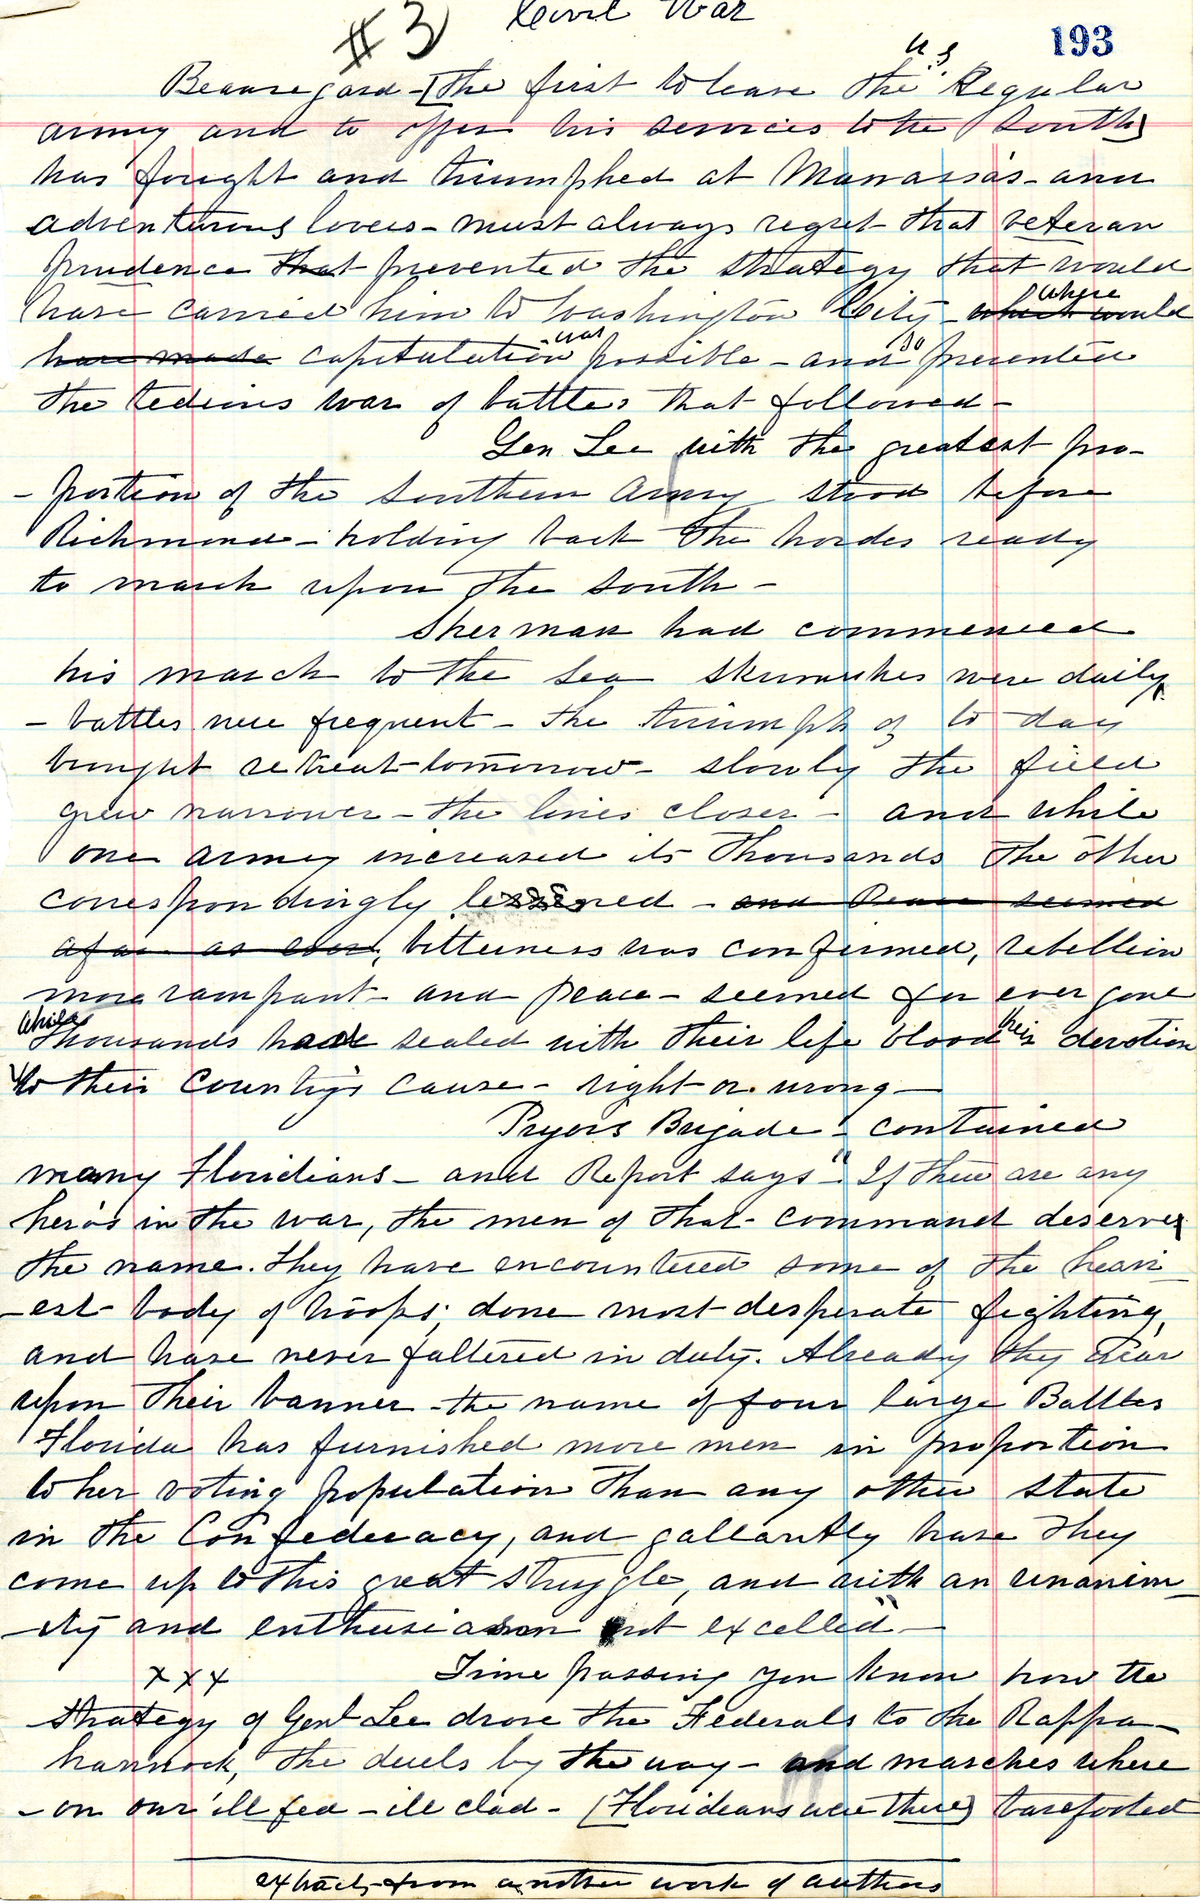 #3 Civil War
193
Beauregard - [the first to leave the U.S. Regular
army and to offer his services to the South]
has fought and triumphed at Manassas - and
adventurous lovers - must always regret that veteran
prudence that prevented the strategy that would
have carried him to Washington City - which would where
have made capitulation - was possible - and so prevented
the tedious war of battles that followed -
Gen Lee with the greatest pro-
- portion of the Southern Army stood before
Richmond - holding back the hordes ready
to march upon the South -
Sherman had commenced
his march to the Sea skirmishes were daily
- battles were frequent - the triumph of to day
brought retreat tomorrow - slowly the field
grew narrower - the lines closer - and while
one army increased its Thousands the other
correspondingly lessened - and Peace seemed
afar as ever, bitterness was confirmed, rebellion
more rampant - and peace - seemed for ever gone
While thousands had sealed with their life blood their devotion
to their Country's cause - right or wrong -
Pryors Brigade - contained
many Floridians - and Report says - "If there are any
hero's in the war, the men of that command deserve
the name. They have encountered some of the heavi-
- est body of troops, done most desperate fighting,
and have never faltered in duty. Already they bear
upon their banner - the name of four large Battles
Florida has furnished more men in proportion
to her voting population than any other state
in the Confederacy, and gallantly have they
come up to this great struggle, and with an unanim-
- ity and enthusiasm not excelled" -
x x x Time passing you know how the
Strategy of Genl Lee drove the Federals to the Rappa-
hannock, the duels by the way - and marches where
- on our ill fed - ill clad - (Floridians were there) barefooted
extracts from another work of authors